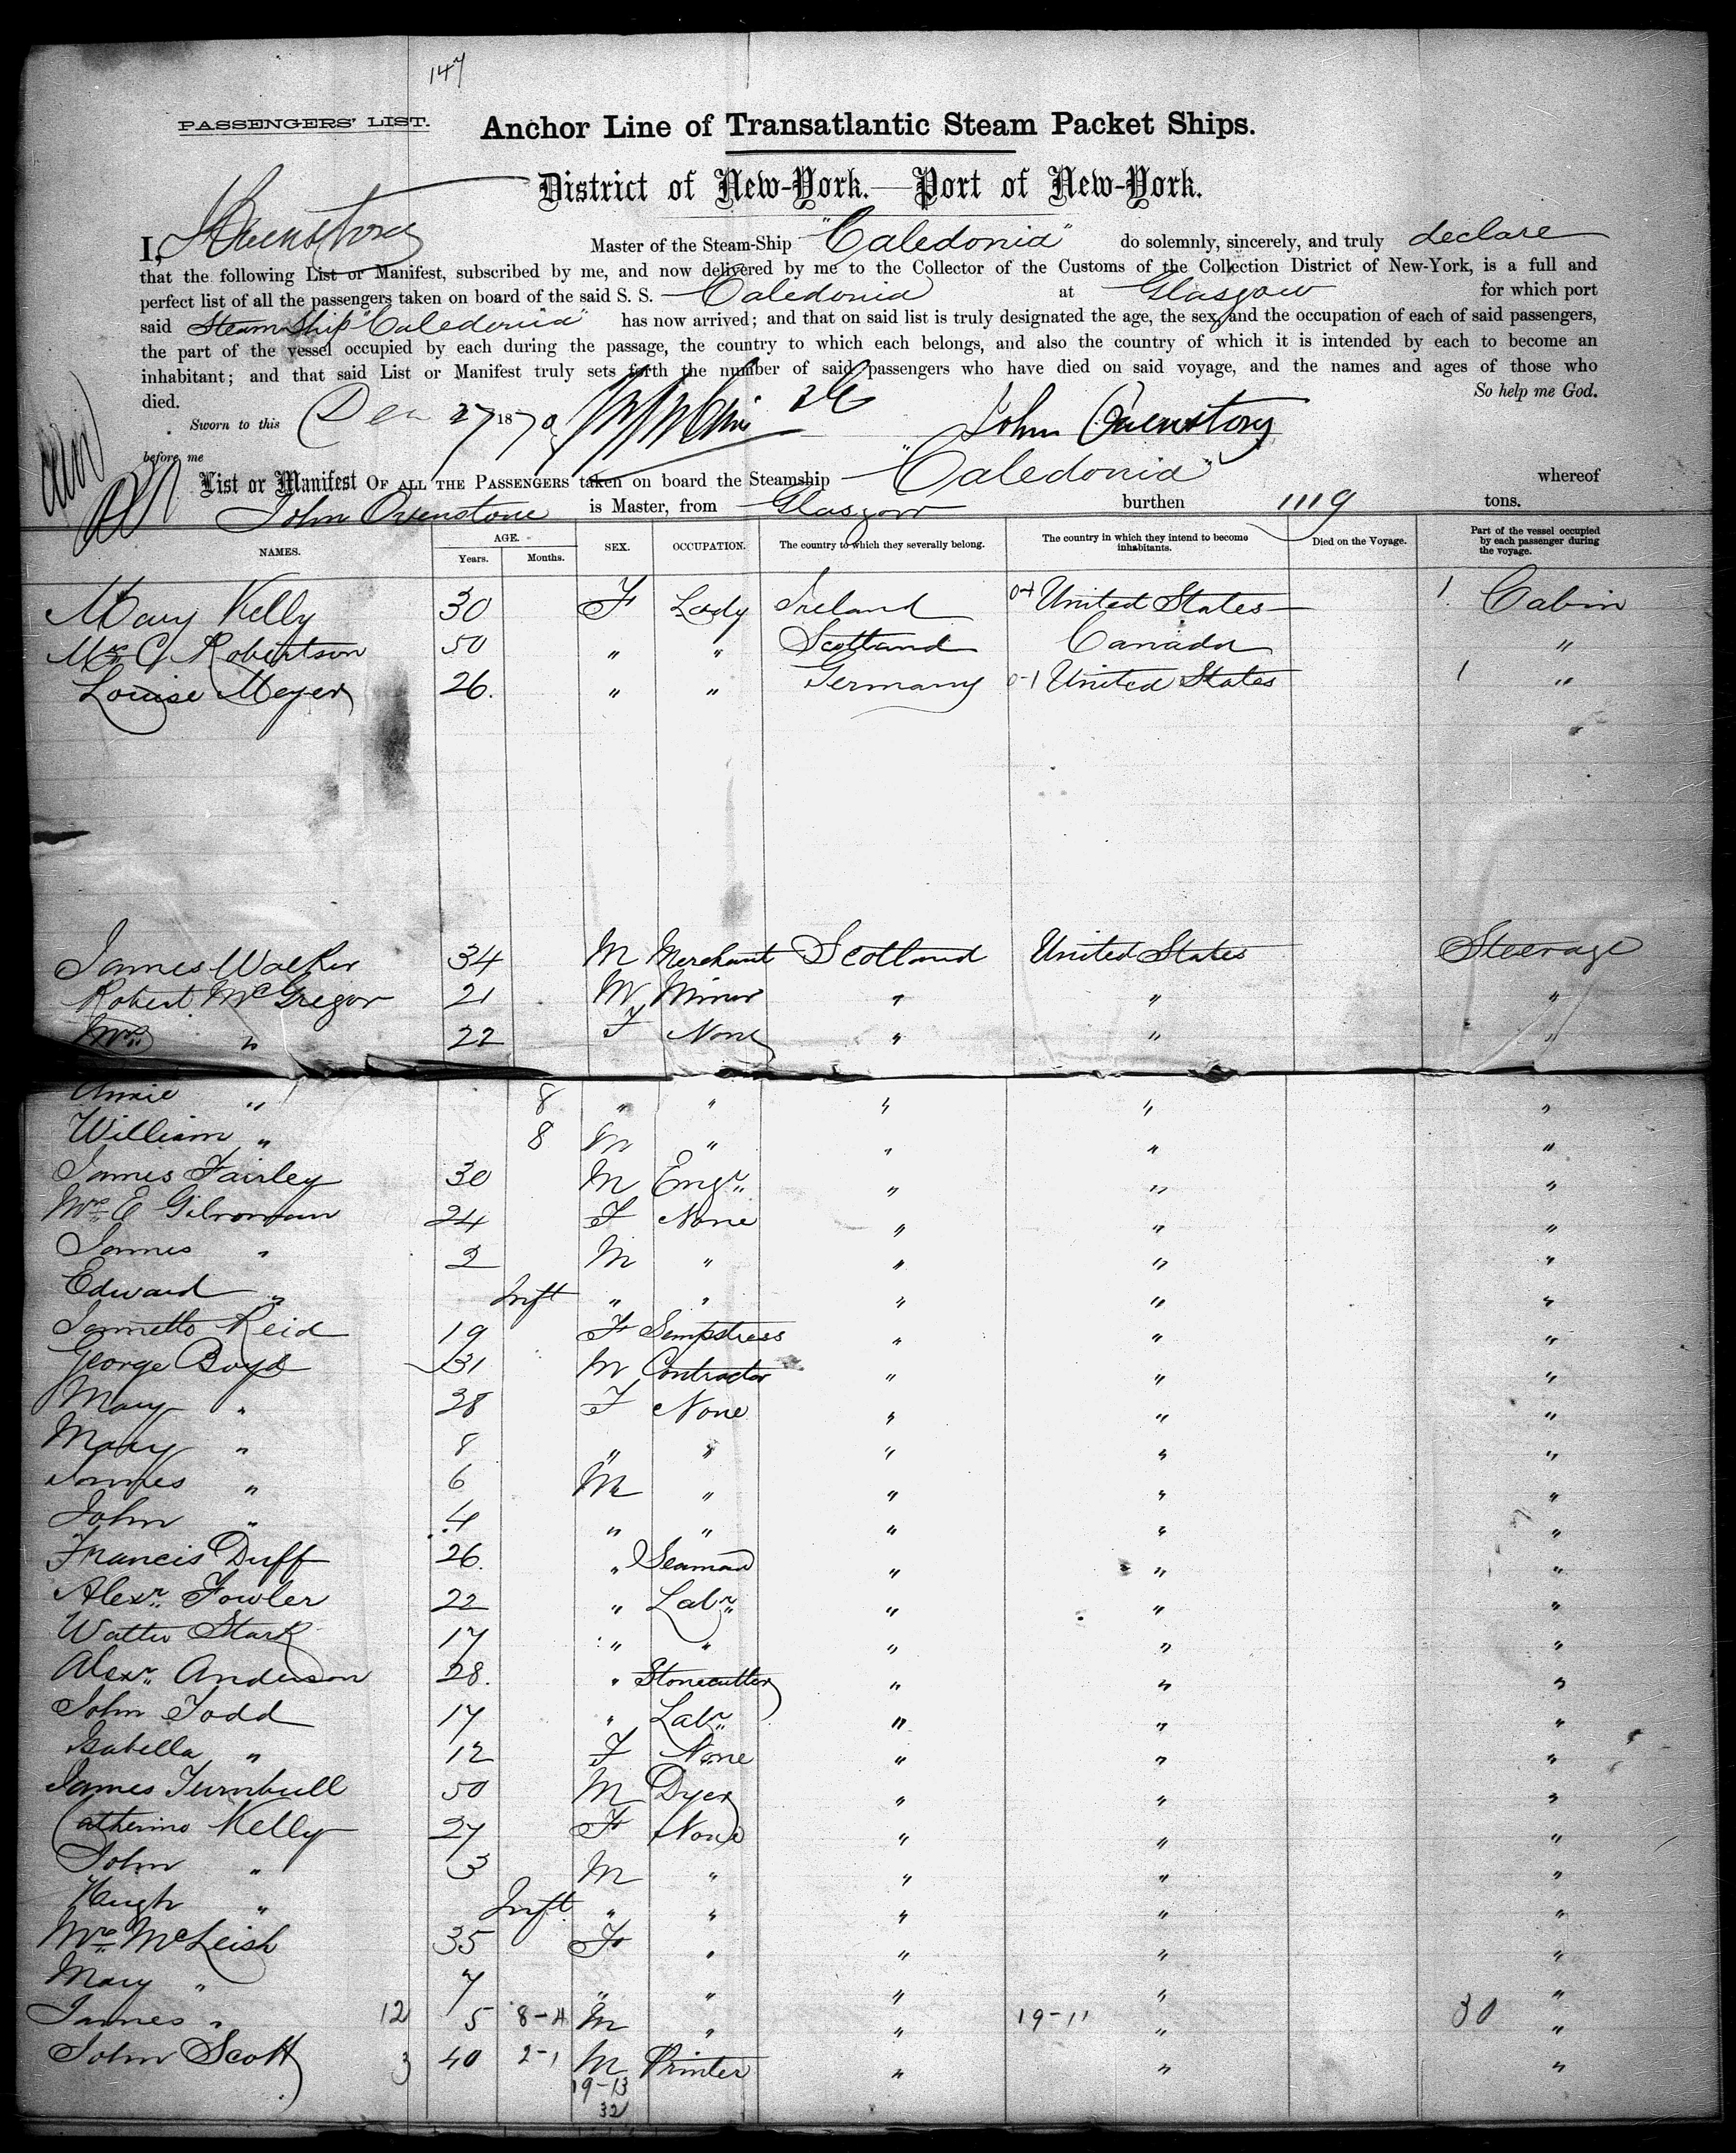 147
PASSENGERS' LIST. Anchor Line of Transatlantic Steam Packet Ships.
District of New-York.—Port of New-York.
I, Master of the Steam-Ship "Caledonia" do solemnly, sincerely, and truly declare
that the following List or Manifest, subscribed by me, and now delivered by me to the Collector of the Customs of the Collection District of New-York, is a full and
perfect list of all the passengers taken on board of the said S. S. Caledonia at Glasgow for which port
said Steam Ship "Caledonia" has now arrived; and that on said list is truly designated the age, the sex, and the occupation of each of said passengers,
the part of the vessel occupied by each during the passage, the country to which each belongs, and also the country of which it is intended by each to become an
inhabitant; and that said List or Manifest truly sets forth the number of said passengers who have died on said voyage, and the names and ages of those who
died. So help me God.
Sworn to this Dec 27 1870 John
before me
List or Manifest OF ALL THE PASSENGERS taken on board the Steamship "Caledonia" whereof
John Ovenstone is Master, from Glasgow burthen 1119 tons.
NAMES. AGE. Years. Months. SEX. OCCUPATION. The country to which they severally belong. The country in which they intend to become inhabitants. Died on the Voyage. Part of the vessel occupied by each passenger during the voyage.
Mary Kelly 30 F Lady Ireland 04 United States 1 Cabin
Mrs C Robertson 50 " " Scotland Canada "
Louise Meyer 26. " " Germany 0-1 United States 1 "
James Walker 34 M Merchant Scotland United States Steerage
Robert McGregor 21 M Miner " " "
Mrs " 22 F None " " "
Annie " 8 " " " " "
William " 8 M " " " "
James Fairley 30 M Engr " " "
Mrs E Gilroman 24 F None " " "
James " 2 M " " " "
Edward " Inft " " " " "
Jannette Reid 19 F Sempstress " " "
George Boyd 31 M Contractor " " "
Mary " 28 F None " " "
Mary " 8 " " " " "
James " 6 M " " " "
John " 4 " " " " "
Francis Duff 26. " Seaman " " "
Alexr Fowler 22 " Labr " " "
Walter Stark 17 " " " " "
Alexr Anderson 28. " Stonecutter " " "
John Todd 17 " Labr " " "
Isabella " 12 F None " " "
James Turnbull 50 M Dyer " " "
Catherine Kelly 27 F None " " "
John " 3 M " " " "
Hugh " Inft " " " " "
Mrs McLeish 35 F " " " "
Mary " 7 " " " " "
James " 12 5 8-4 M " " 19-11 " 30 "
John Scott 3 40 2-1 M Printer " " "
19-13
32